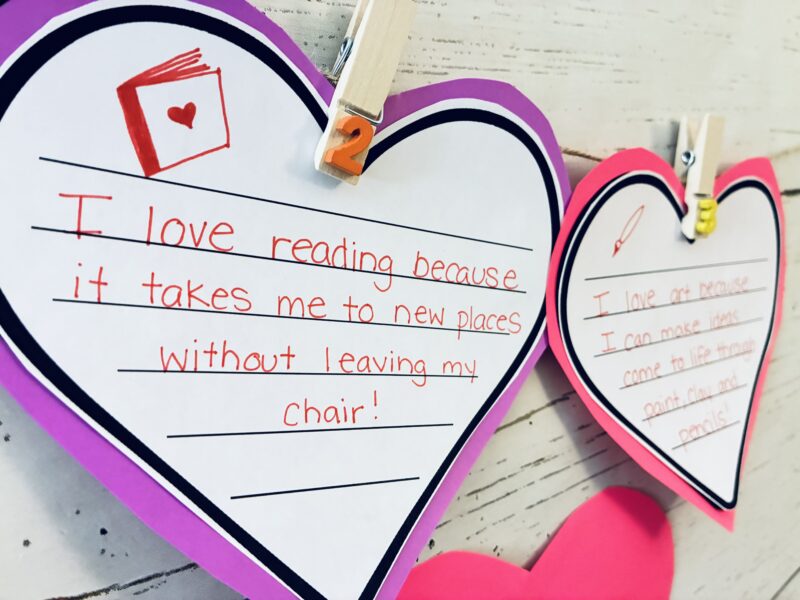 2
I love reading because
it takes me to new places
without leaving my
chair!
3
I love art because
I can make ideas
come to life through
paint, clay and
pencils!